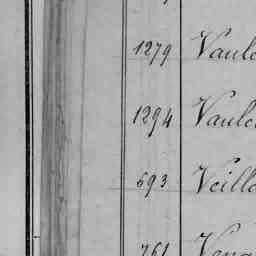 1279 Vaulc
1294 Vaulc
693 Veill
761 Veng